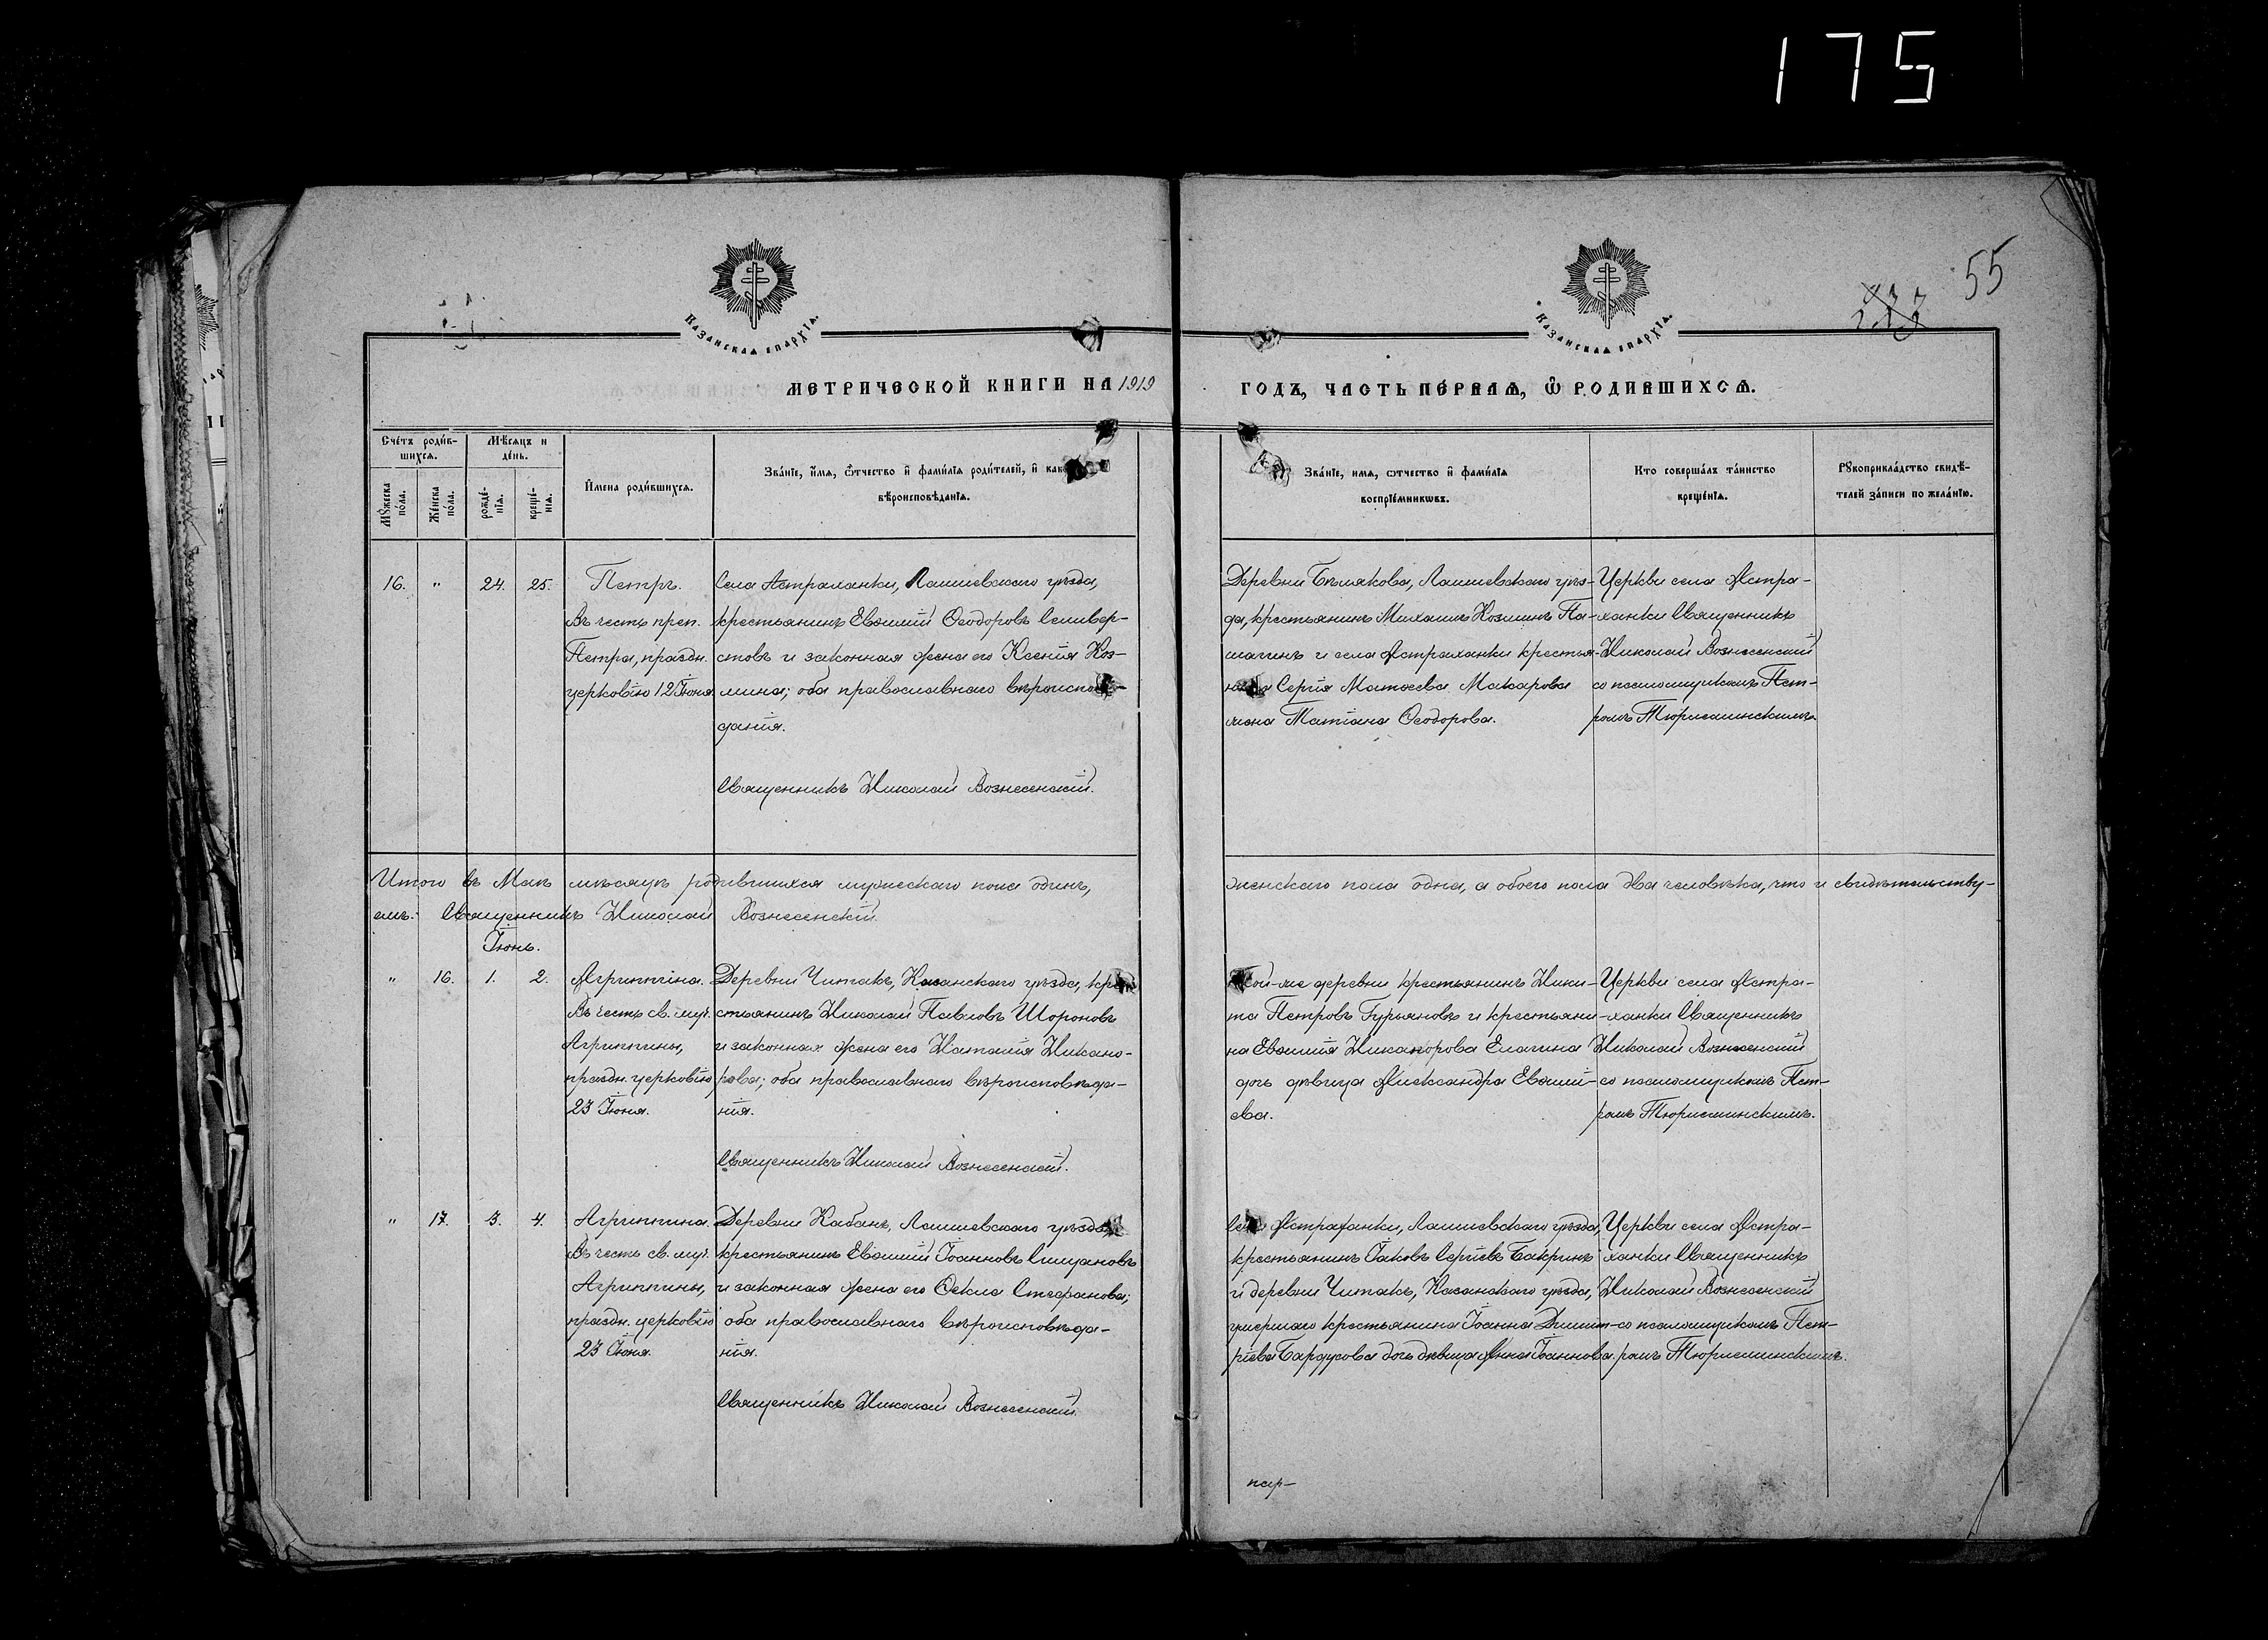 175
55
Казанская епархїѧ.
Казанская епархїѧ.
МЕТРИЧЕСКОЙ КНИГИ НА 1919
ГОДЪ, ЧАСТЬ ПЕРВАѦ, Ѽ РОДИВШИХСѦ.
Сче́тъ роди́вшихсѧ.
Мѣ́сѧцъ и де́нь.
Мꙋ́жеска по́ла.
Же́нска по́ла.
рожде́нїѧ.
креще́нїѧ.
Имена роди́вшихсѧ.
Зва́нїе, и́мѧ, ѻ́тчество и фами́лїѧ роди́телей, и како
вѣроисповѣ́данїѧ.
Зва́нїе, имѧ, ѻтчество и фами́лїѧ
воспрїе́мникѡвъ.
Кто соверша́лъ та́инство
креще́нїѧ.
Рꙋкоприкла́дство свидѣ́-
телей за́писи по жела́нїю.
16. " 24. 25.
Петръ.
Въ честь преп.
Петра, праздн.
церковію 12 Іюня.
Села Астраханки, Лаишевскаго уѣзда,
крестьянинъ Евѳимій Ѳеодоровъ Селивер-
стовъ и законная жена его Ксенія Коз-
мина; оба православнаго вѣроиспо-
данія.
Священникъ Николай Вознесенскій.
Деревни Бѣляковa, Лаишевскаго уѣз-
да, крестьянинъ Михаилъ Козминъ Па-
шагинъ и села Астраханки крестья-
Сергія Матѳеева Макарова
жена Татіана Ѳеодорова.
Церкви села Астра-
ханки Священникъ
Николай Вознесенскій
со псаломщикомъ Пет-
ромъ Тюрнеминскимъ.
Итого въ Маѣ мѣсяцѣ родившихся мужескаго пола одинъ,
женскаго пола одна, а обоего пола два человѣка, что и свидѣтельству-
емъ: Священникъ Николай Вознесенскій.
Іюнь.
" 16. 1. 2.
Агриппина.
Въ честь св. муч.
Агриппины,
праздн. церковію
23 Іюня.
Деревни Читакъ, Казанскаго уѣзда, кре
стьянинъ Николай Павловъ Шороновъ
и законная жена его Наталія Никано-
рова; оба православнаго вѣроисповѣда-
нія.
Священникъ Николай Вознесенскій.
Той-же деревни крестьянинъ Ники-
та Петровъ Гурьяновъ и крестьяни-
на Евѳимія Никанорова Елагина
дочь дѣвица Александра Евѳимі-
ева.
Церкви села Астра-
ханки Священникъ
Николай Вознесенскій
со псаломщикомъ Пет-
ромъ Тюрнеминскимъ.
" 17. 3. 4.
Агриппина.
Въ честь св. муч.
Агриппины,
праздн. церковію
23 Іюня.
Деревни Кабанъ, Лаишевскаго уѣзда,
крестьянинъ Евѳимій Іоанновъ Сищановъ
и законная жена его Ѳекла Стефанова;
оба православнаго вѣроисповѣда-
нія.
Священникъ Николай Вознесенскій.
Села Астраханки, Лаишевскаго уѣзда,
крестьянинъ Іаковъ Сергіевъ Бакринъ
и деревни Читакъ, Казанскаго уѣзда,
умершаго крестьянина Іоанна Димит-
ріева Бардусова дочь дѣвица Анна Іоаннова.
Церкви села Астра-
ханки Священникъ
Николай Вознесенскій
со псаломщикомъ Пет-
ромъ Тюрнеминскимъ.